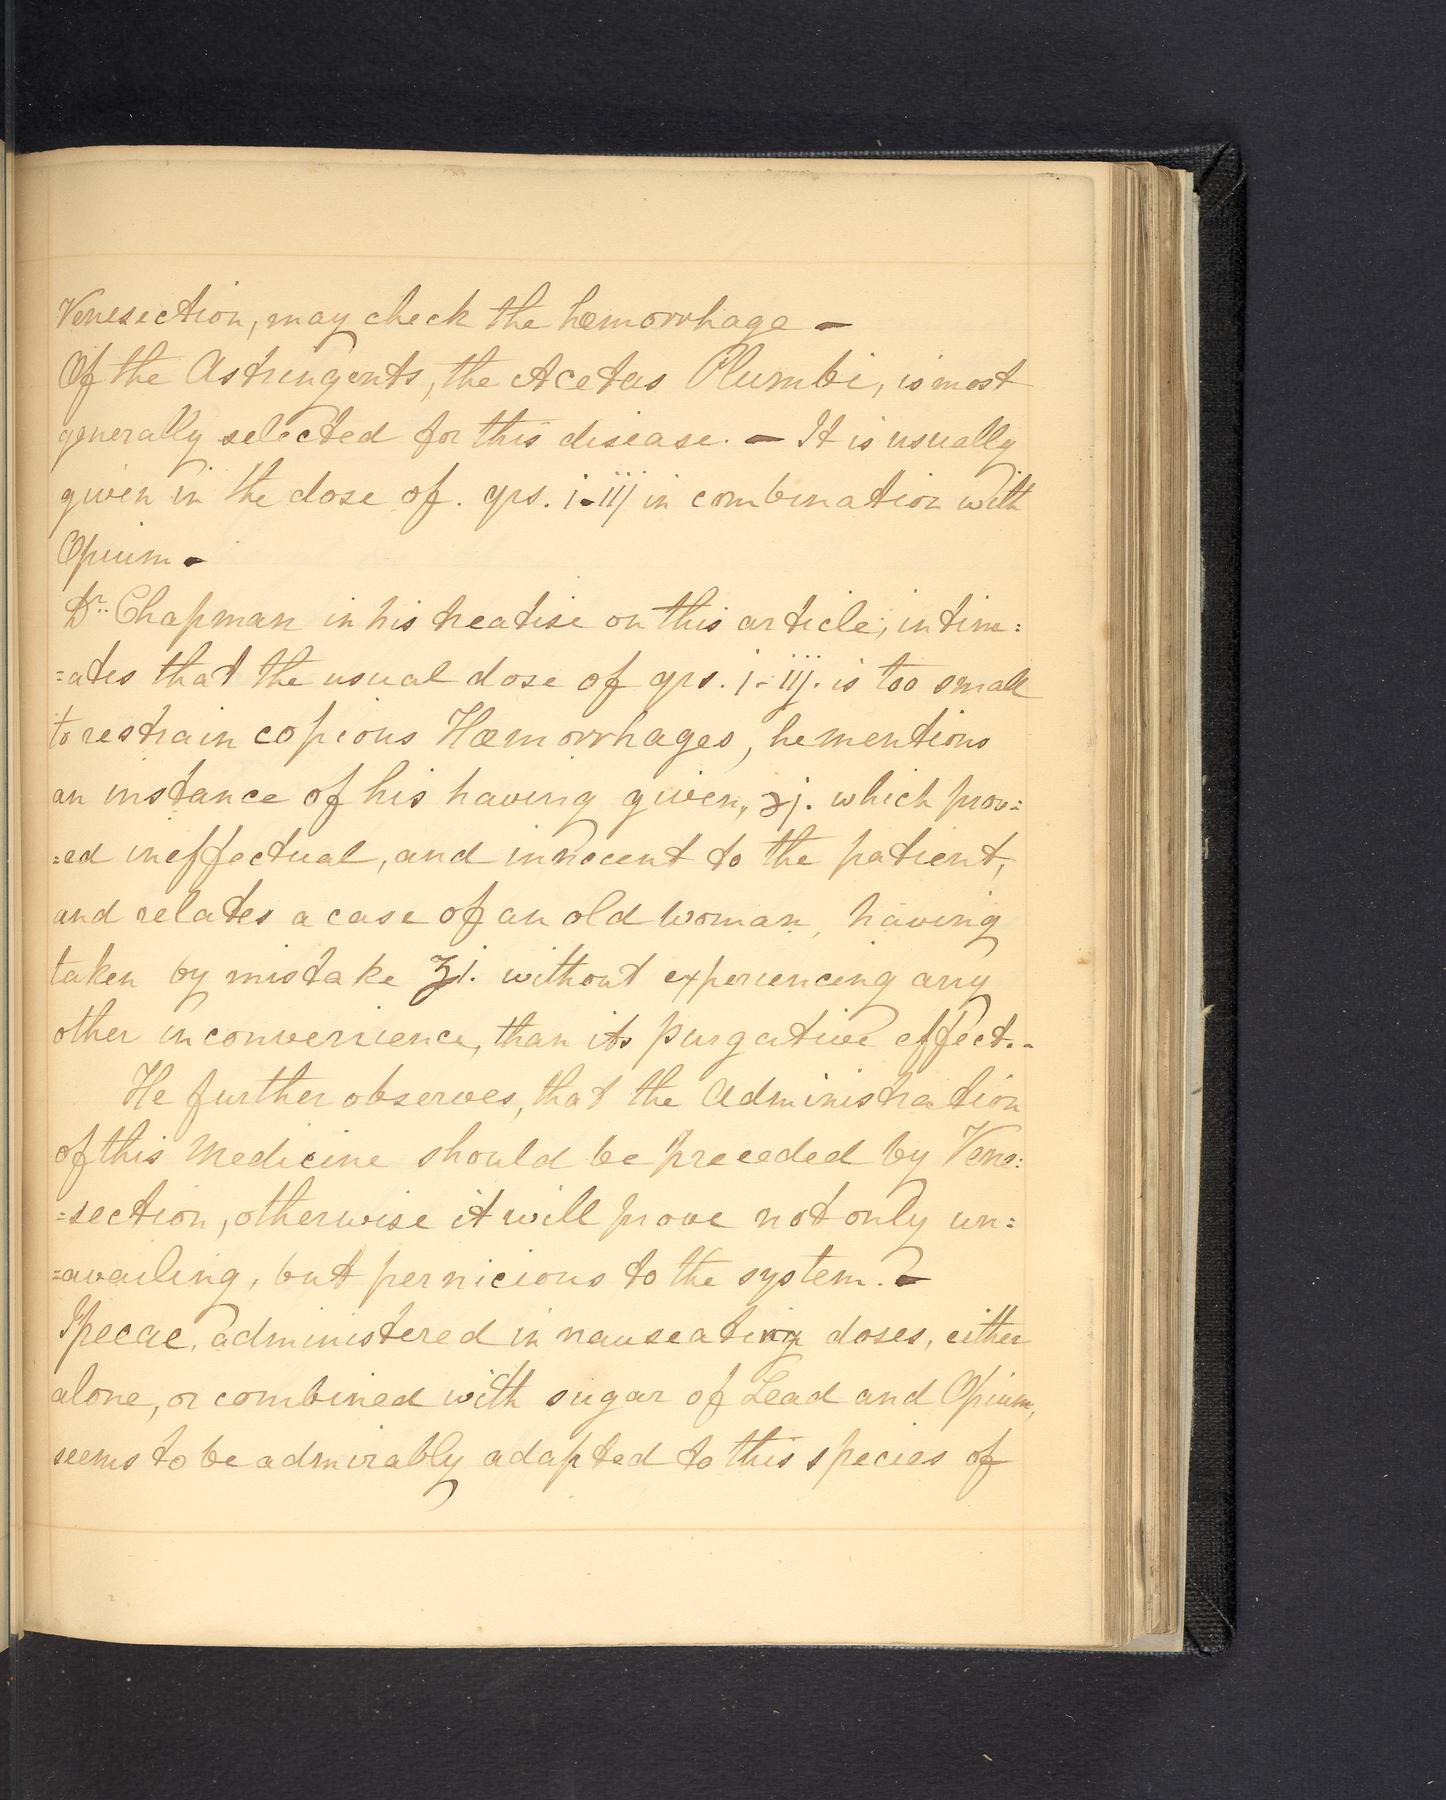 Venesection, may check the hæmorrhage –
Of the Astringents, the Acetas Plumbi, is most
generally selected for this disease. – It is usually
given in the dose of. grs. i-iij in combination with
Opium –
Dr. Chapman in his treatise on this article, intim:
=ates that the usual dose of grs. j-iij. is too small
to restrain copious Hæmorrhages, he mentions
an instance of his having given, ℈j. which prov=
=ed ineffectual, and innocent to the patient,
and relates a case of an old woman, having
taken by mistake ʒi. without experiencing any
other inconvenience, than its purgative effect. -
He further observes, that the Administration
of this Medicine should be preceded by Vene:
=section, otherwise it will prove not only un=
=availing, but pernicious to the system. –
Ipecac, administered in nauseating doses, either
alone, or combined with sugar of Lead and Opium,
seems to be admirably adapted to this species of